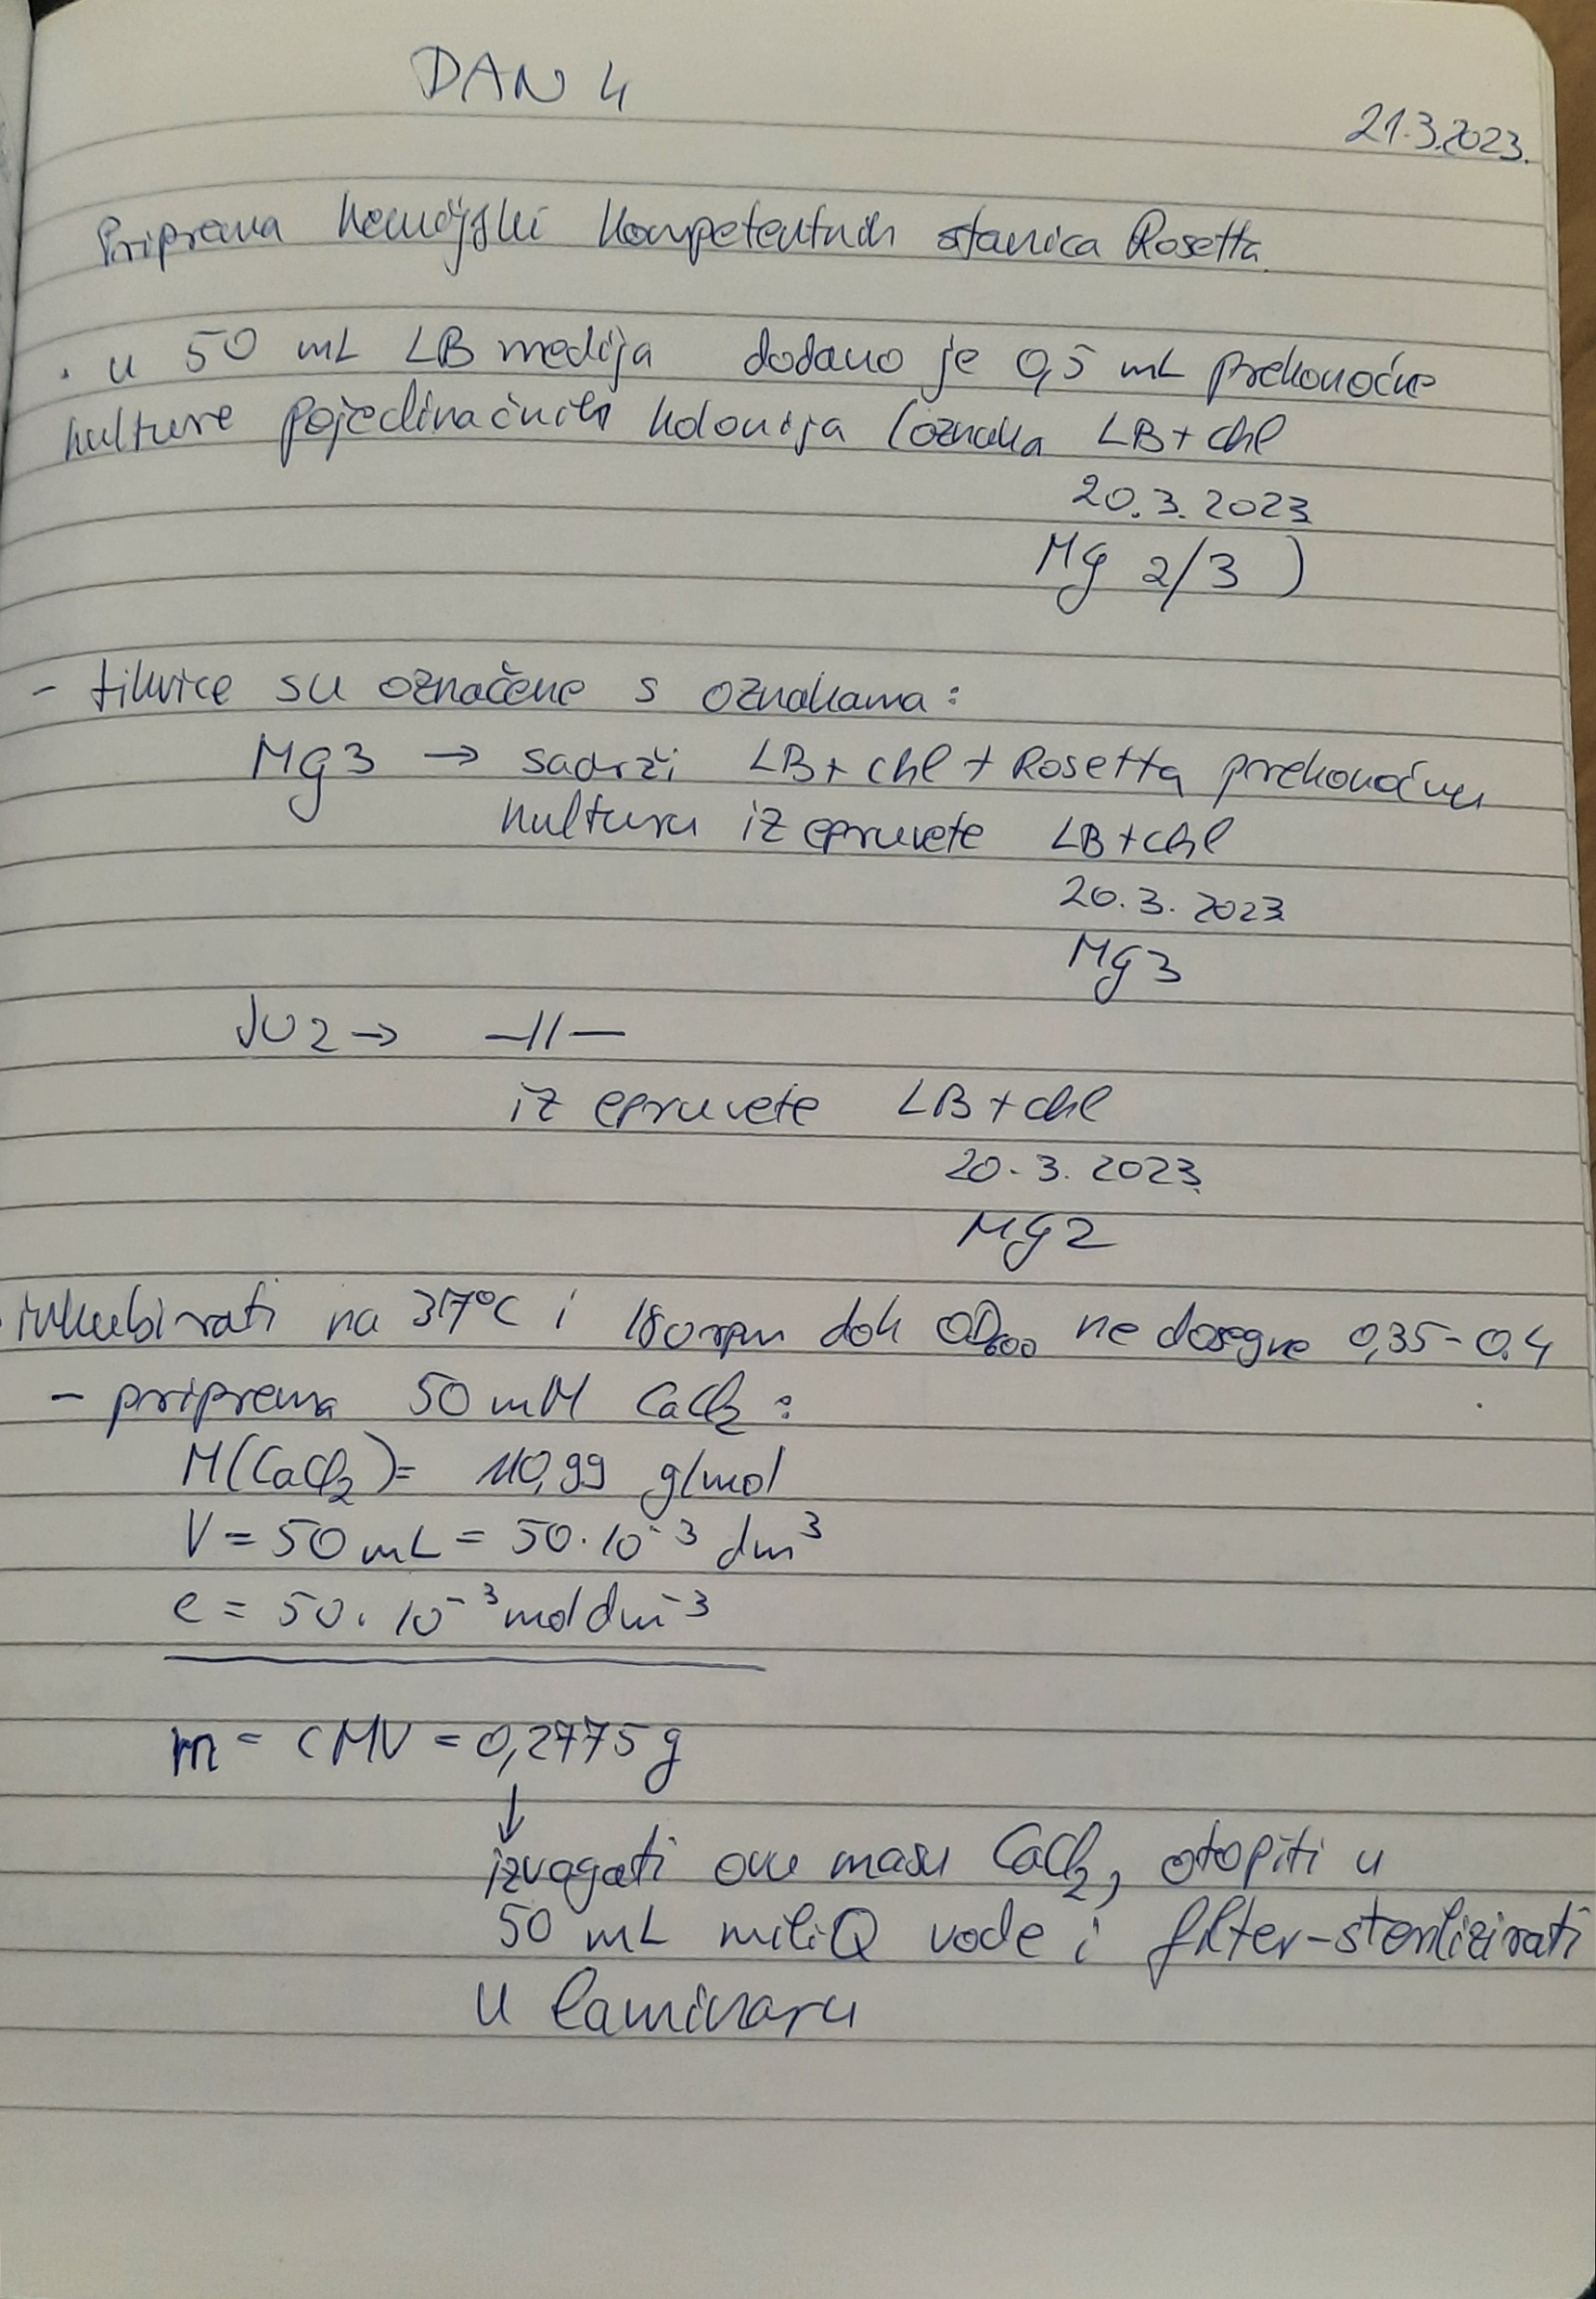 DAN 4
21.3.2023.
Priprema kemijski kompetentnih stanica Rosetta
· u 50 mL LB medija dodano je 0,5 mL prekonoćne
kulture pojedinačnih kolonija (oznaka LB + chl
20.3.2023
Mg 2/3 )
- tikvice su označene s oznakama:
Mg3 → sadrži LB + chl + Rosetta prekonoćnu
kulturu iz epruvete LB + chl
20.3.2023
Mg3
JU2 → —//—
iz epruvete LB + chl
20.3.2023
Mg2
· inkubirati na 37°C i 180 rpm dok OD600 ne dosegne 0,35-0.4
- priprema 50 mM CaCl2 :
M(CaCl2) = 110,99 g/mol
V = 50 mL = 50·10-3 dm3
c = 50·10-3 mol dm-3
m = cMV = 0,2775 g
↓
izvagati ovu masu CaCl2, otopiti u
50 mL miliQ vode i filter-sterilizirati
u laminaru